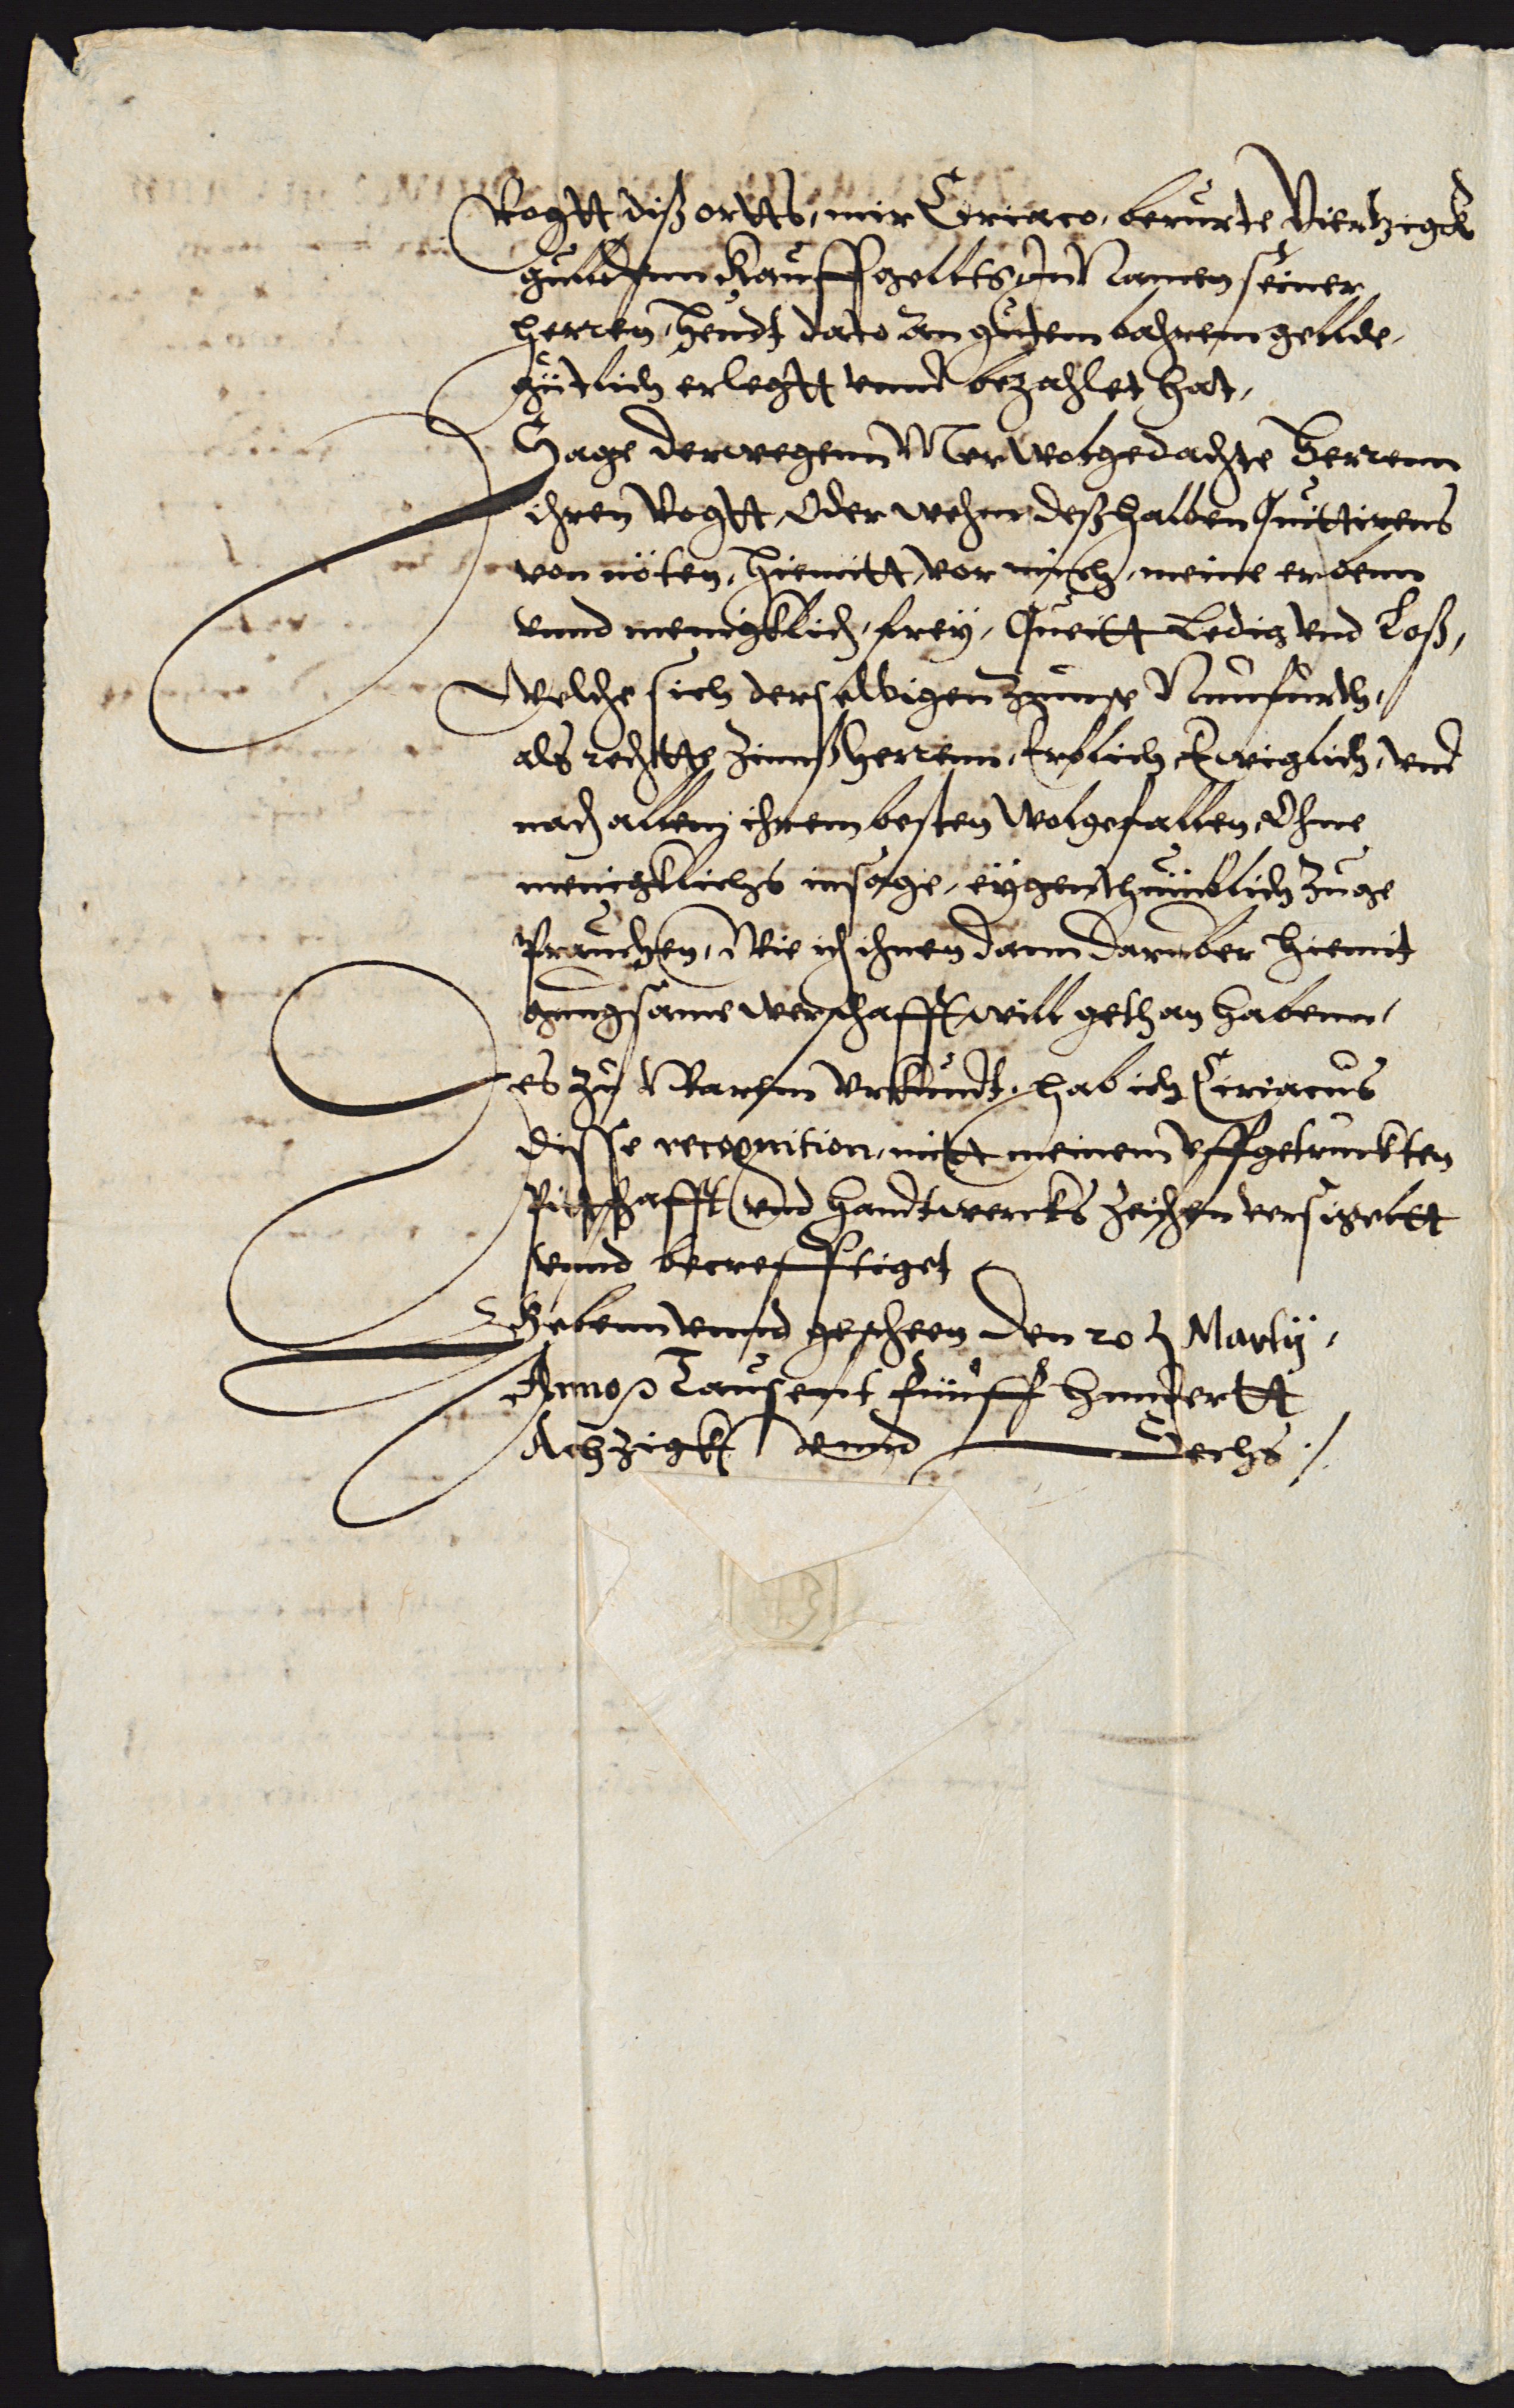 Vogtt diß ortts, mir Ciriaco, berürte Viertzigk
guldenn Kauffgelltß, In Namen seiner
herren, heudt dato an gutem bahrem gellde,
gütlich erlegtt vnnd bezahlet hat,
Sage derwegenn Mer wolgedachte herrenn
ihren Vogtt, Oder wehme deßhalben Quittirens
von nöten, hiemitt, vor mich, meine erbenn
vnnd menigklich, frey, Queitt Ledig vnd Loß,
Welche sich derselbigen Zinnse Nunfurth,
als rechtte Zinnßherrenn, Erblich, Ewiglich, vnd
nach allem ihrem besten Wolgefallen, Ohne
menigklichs insage, eygenthümblich zuge
prauchen, Wie ich ihnen dann darüber hiemit
gnugsame werschafft will gethan habenn,
Des zu Warem Vrkundt, hab ich Ciriacus
disse recognition, mitt meinem vffgetruckten
Pitschafft vnd handtwercks Zeichen versigeltt
vnnd becrefftiget
Gebenn vnnd gescheen den 20 t. Martij,
Anno Tausent fünff hundertt
Achzigk vnnd Sechs ./